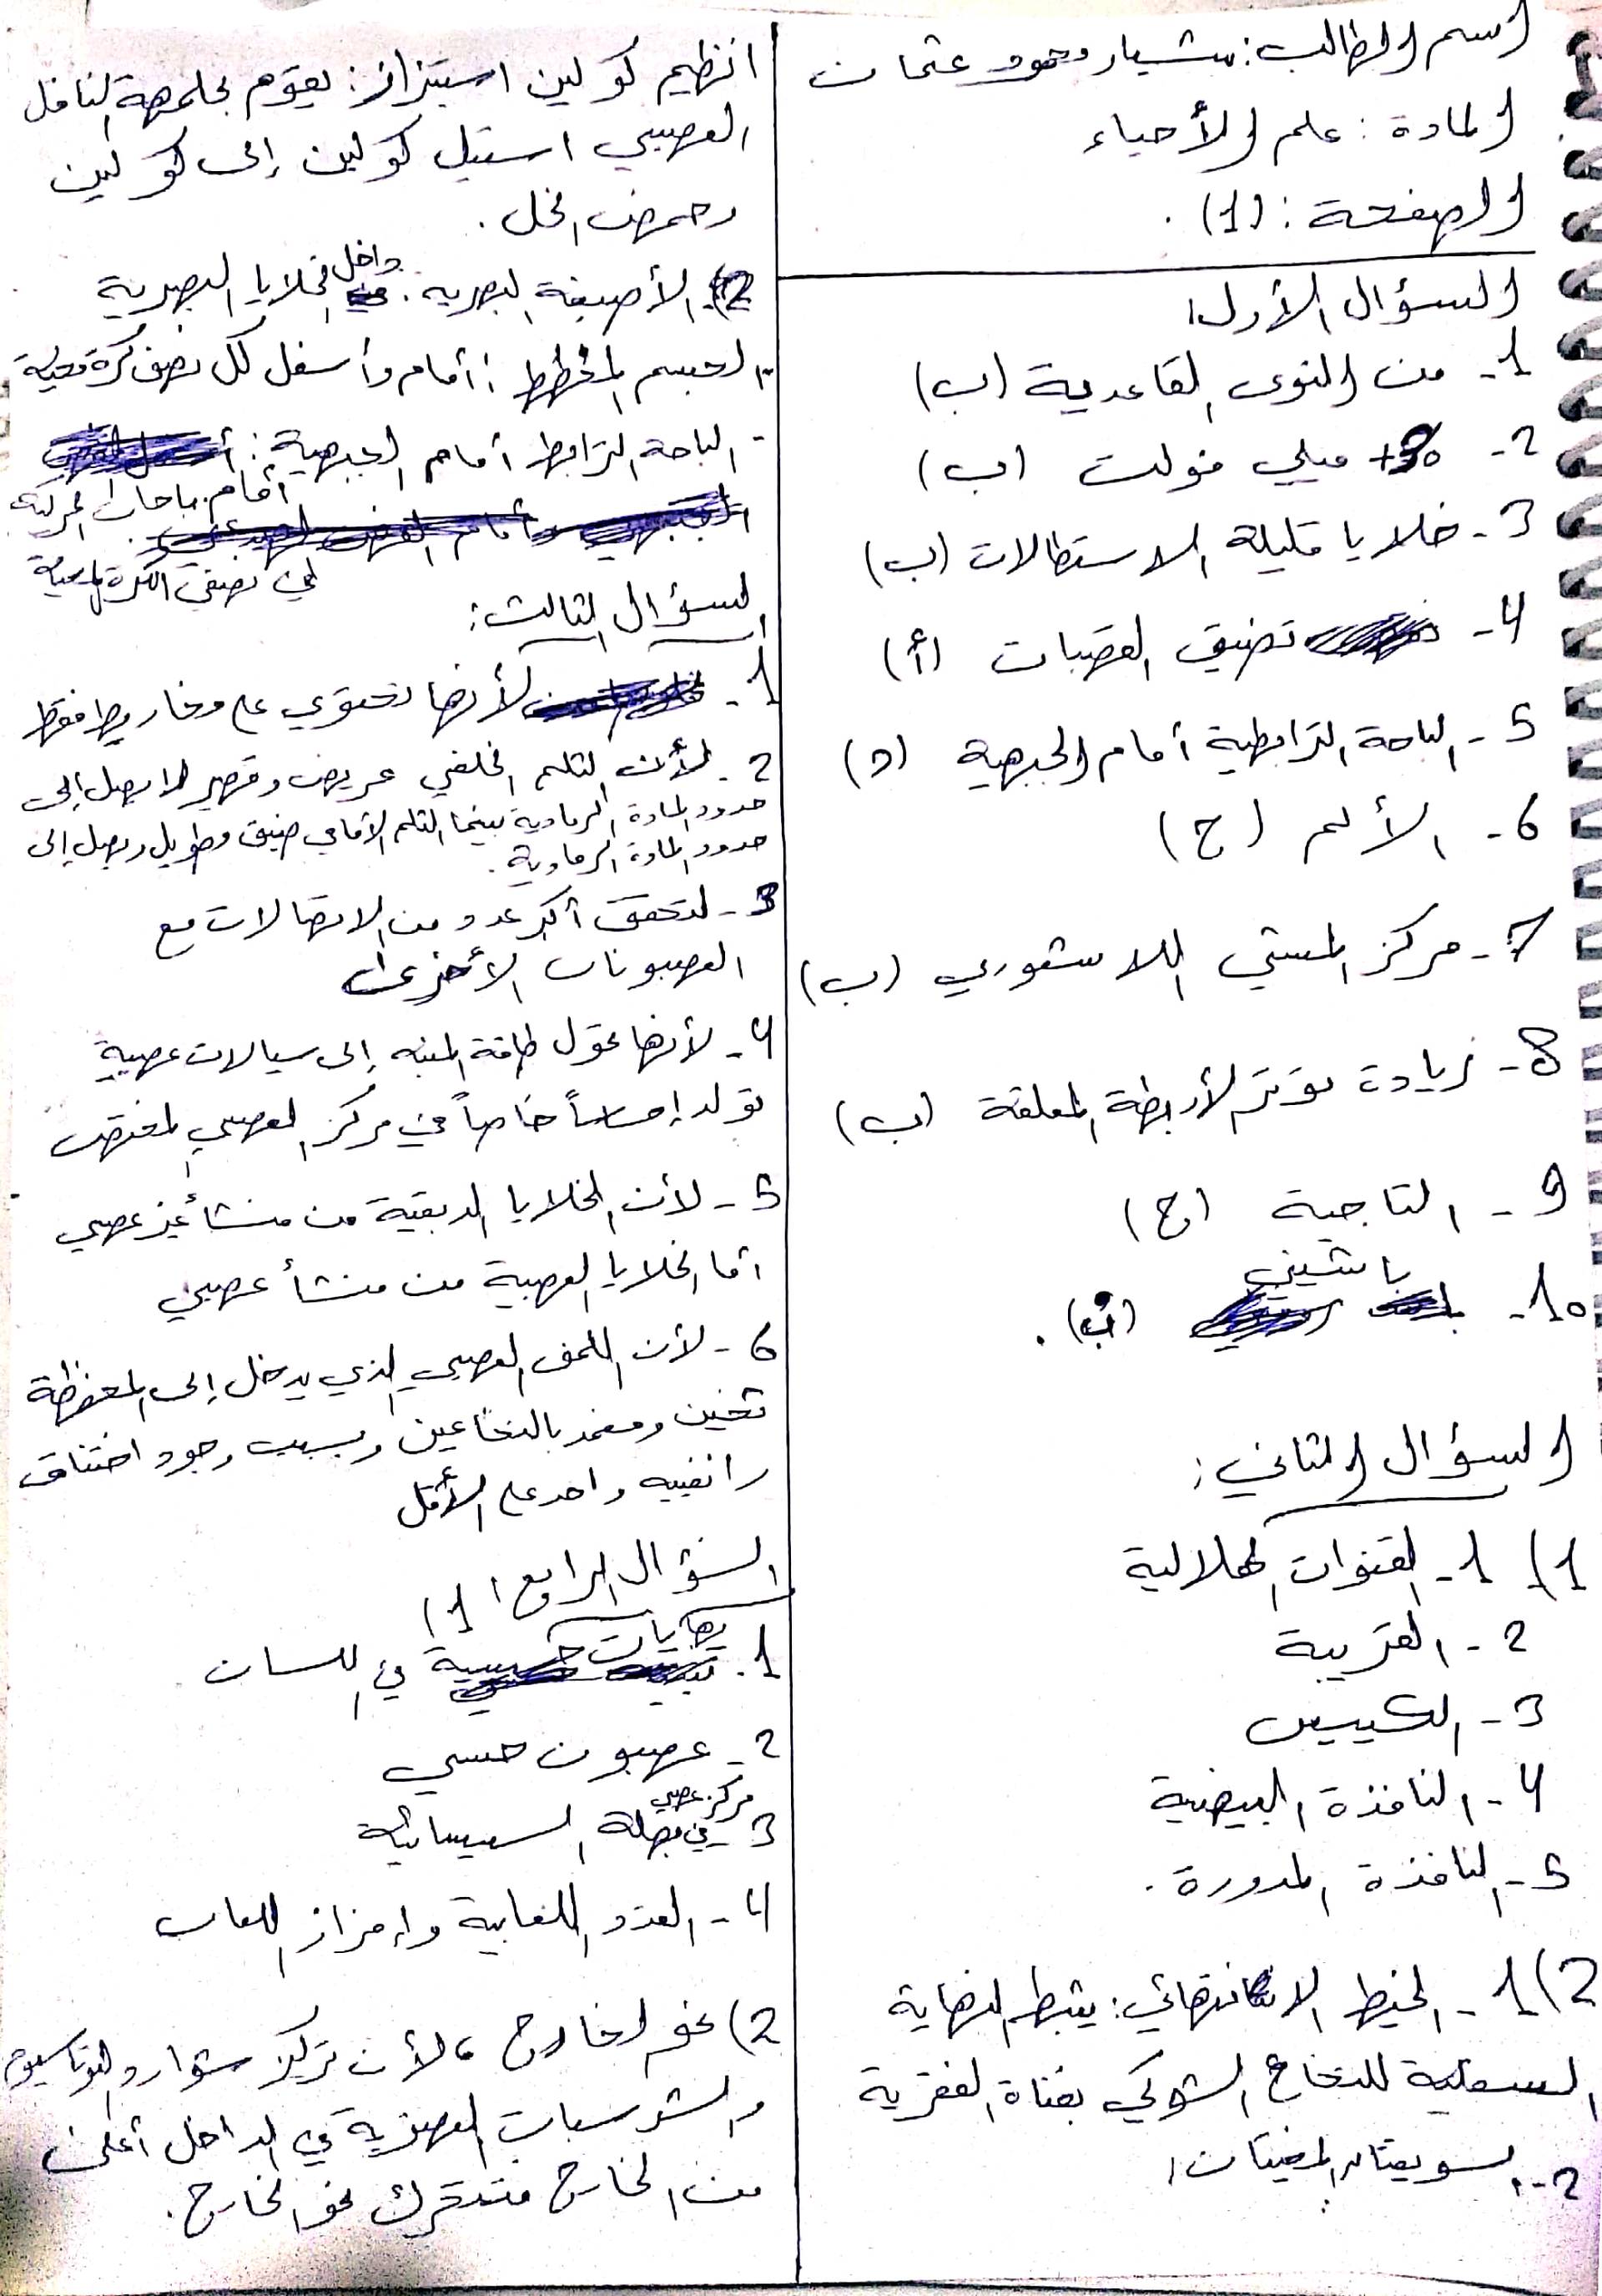 اسم الطالب: بشيار محمود عثمان
المادة: علم الأحياء
الصفحة: (1).
السؤال الأول:
1- من النوى القاعدية (ب)
2- +30 ميلي فولت (ب)
3- خلايا قليلة الاستطالات (ب)
4- تضيق القصبات (أ)
5- الباحة الترابطية أمام الجبهية (د)
6- الألم (ج)
7- مركز المشي اللاشعوري (ب)
8- زيادة توتر الأربطة المعلقة (ب)
9- التاجية (ج)
10- باشيني
السؤال الثاني:
1) 1- القنوات الهلالية
2- القريبة
3- الكييس
4- النافذة البيضية
5- النافذة المدورة.
2) 1- الخيط الانتهائي: يثبط النهاية
السفلية للنخاع الشوكي بقناة الفقرية
2- سويقتا المخيتان:
انظيم كولين استيراز: يقوم بحلمهة الناقل
العصبي استيل كولين إلى كولين
وحمض الخل.
2) الأصبغة البصرية: داخل الخلايا البصرية
- الجسم المخطط: أمام وأسفل كل نصف كرة مخية
- الباحة الترابط أمام الجبهية:
أمام باحات الحركية
في نصفي الكرة المخية
السؤال الثالث:
1- لأنها تحتوي على مخاريط فقط
2- لأن الثلم الخلفي عريض وقصير لا يصل إلى
حدود المادة الرمادية بينما الثلم الأمامي ضيق وطويل ويصل إلى
حدود المادة الرمادية.
3- لتحقق أكبر عدد من الاتصالات مع
العصبونات الأخرى
4- لأنها تحول طاقة المنبه إلى سيالات عصبية
تولد إحساساً خاصاً في مركز العصبي المختص
5- لأن الخلايا الدبقية من منشأ غير عصبي
أما الخلايا العصبية من منشأ عصبي
6- لأن الليف العصبي الذي يدخل إلى المحفظة
ثخين ومغمد بالنخاعين وبسبب وجود اختناق
رانفييه واحد على الأقل
السؤال الرابع: 1)
1- نهايات حسية في اللسان
2- عصبون حسي
3- مركز عصبي في بصلة السيسائية
4- الغدد اللعابية وإفراز اللعاب
2) نحو الخارج، لأن تركيز شوارد البوتاسيوم
والشرسبات العضوية في الداخل أعلى
من الخارج فتتحرك نحو الخارج.